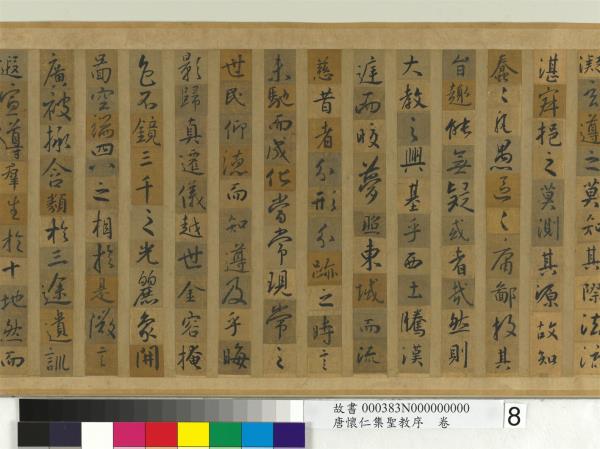 凝玄遵之莫知其際法流
湛寂挹之莫測其源故知
蠢〻凡愚區〻庸鄙投其
旨趣能無疑或者哉然則
大教之興基乎西土騰漢
庭而皎夢照東域而流
慈昔者分形分跡之時言
未馳而成化當常現常之
世民仰德而知遵及乎晦
影歸真遷儀越世金容掩
色不鏡三千之光麗象開
圖空端四八之相於是微言
廣被拯含類於三途遺訓
遐宣導羣生於十地然而
故書 000383N000000000
唐懷仁集聖教序 卷
8